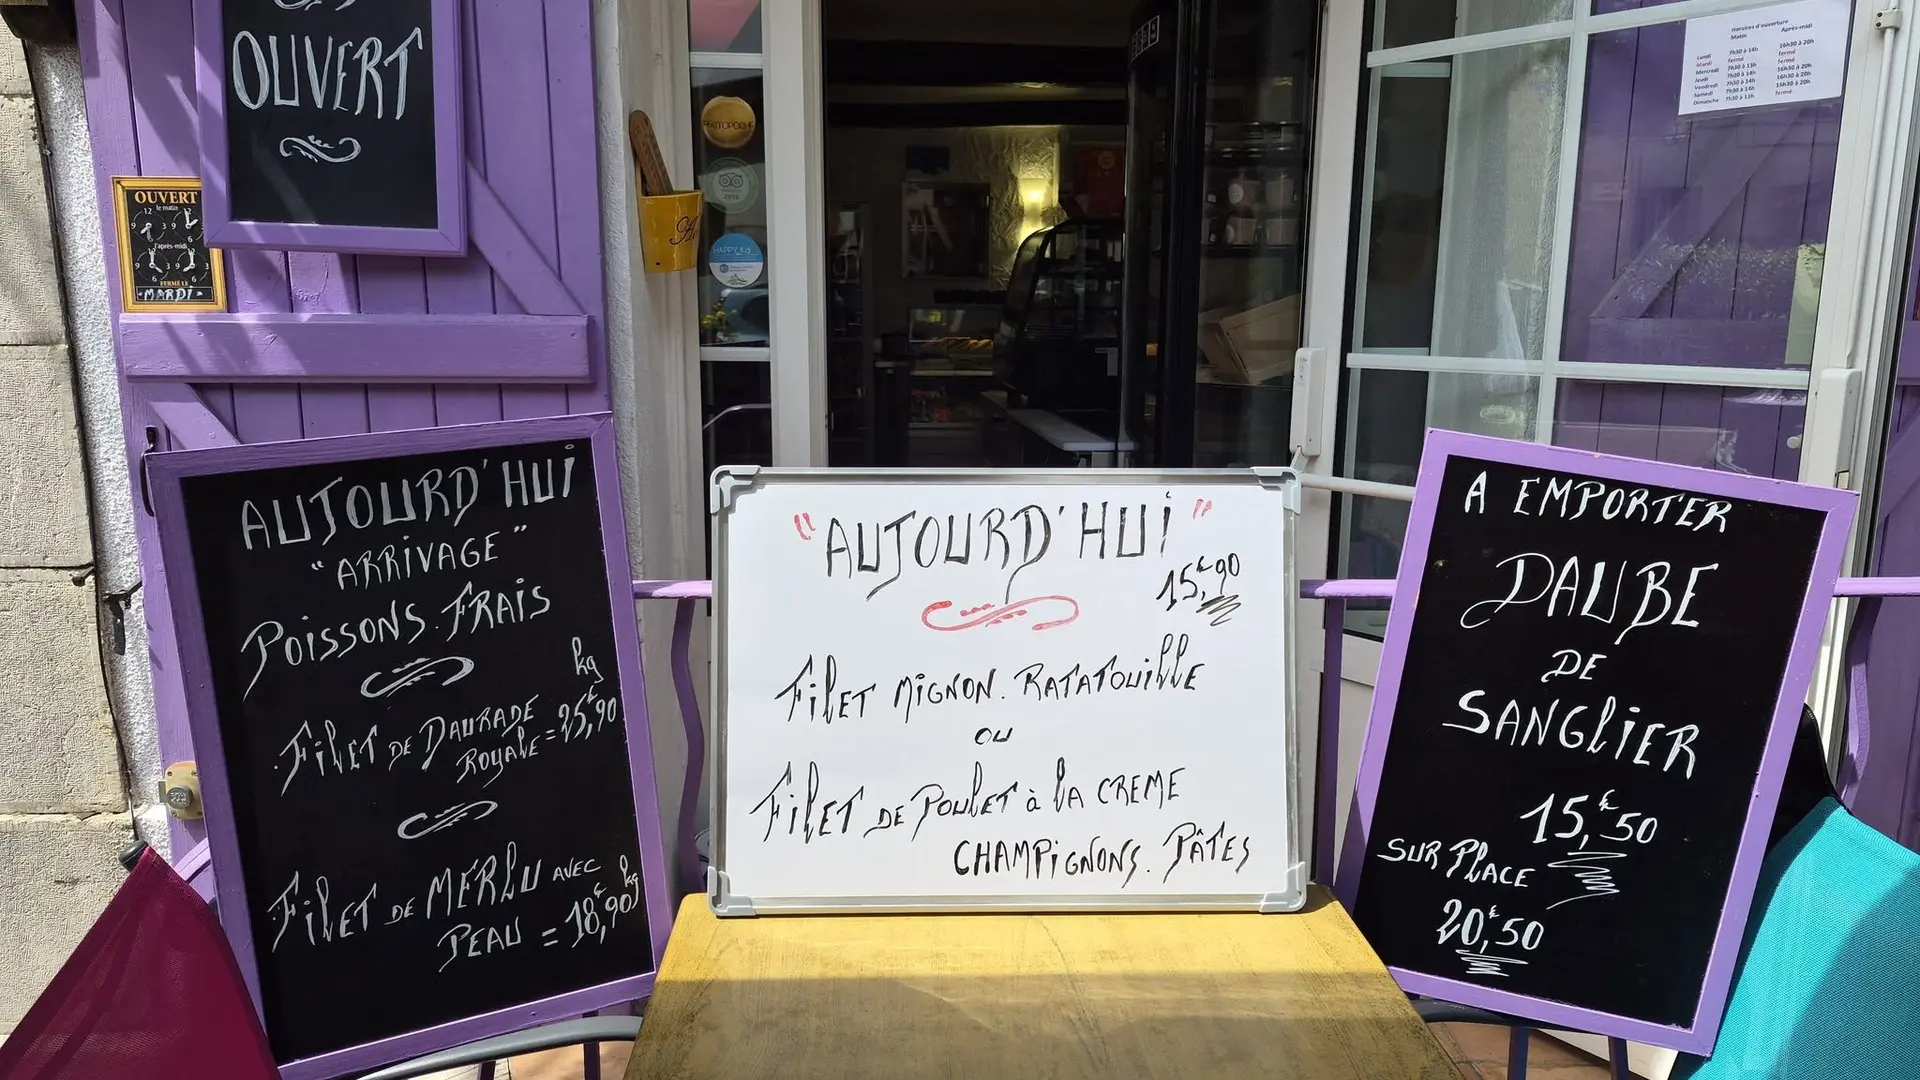 OUVERT
OUVERT
le matin
12 12
9 3 9 3
6 6
l'après-midi
9 3 9 3
6 6
FERMÉ LE
MARDI
HAPPY_Kd
Horaires d'ouverture
Matin Après-midi
Lundi 7h30 à 14h 16h30 à 20h
Mardi fermé fermé
Mercredi 7h30 à 13h fermé
Jeudi 7h30 à 14h 16h30 à 20h
Vendredi 7h30 à 14h 16h30 à 20h
Samedi 7h30 à 14h 16h30 à 20h
Dimanche 7h30 à 13h fermé
AUJOURD'HUI
"ARRIVAGE"
POISSONS.FRAIS
kg
FILET DE DAURADE
ROYALE = 25,€90
FILET DE MERLU AVEC
PEAU = 18,€90 kg
"AUJOURD'HUI"
15,€90
FILET MIGNON. RATATOUILLE
OU
FILET DE POULET à LA CREME
CHAMPIGNONS. PÂTES
A EMPORTER
DAUBE
DE
SANGLIER
15,€50
SUR PLACE
20,€50